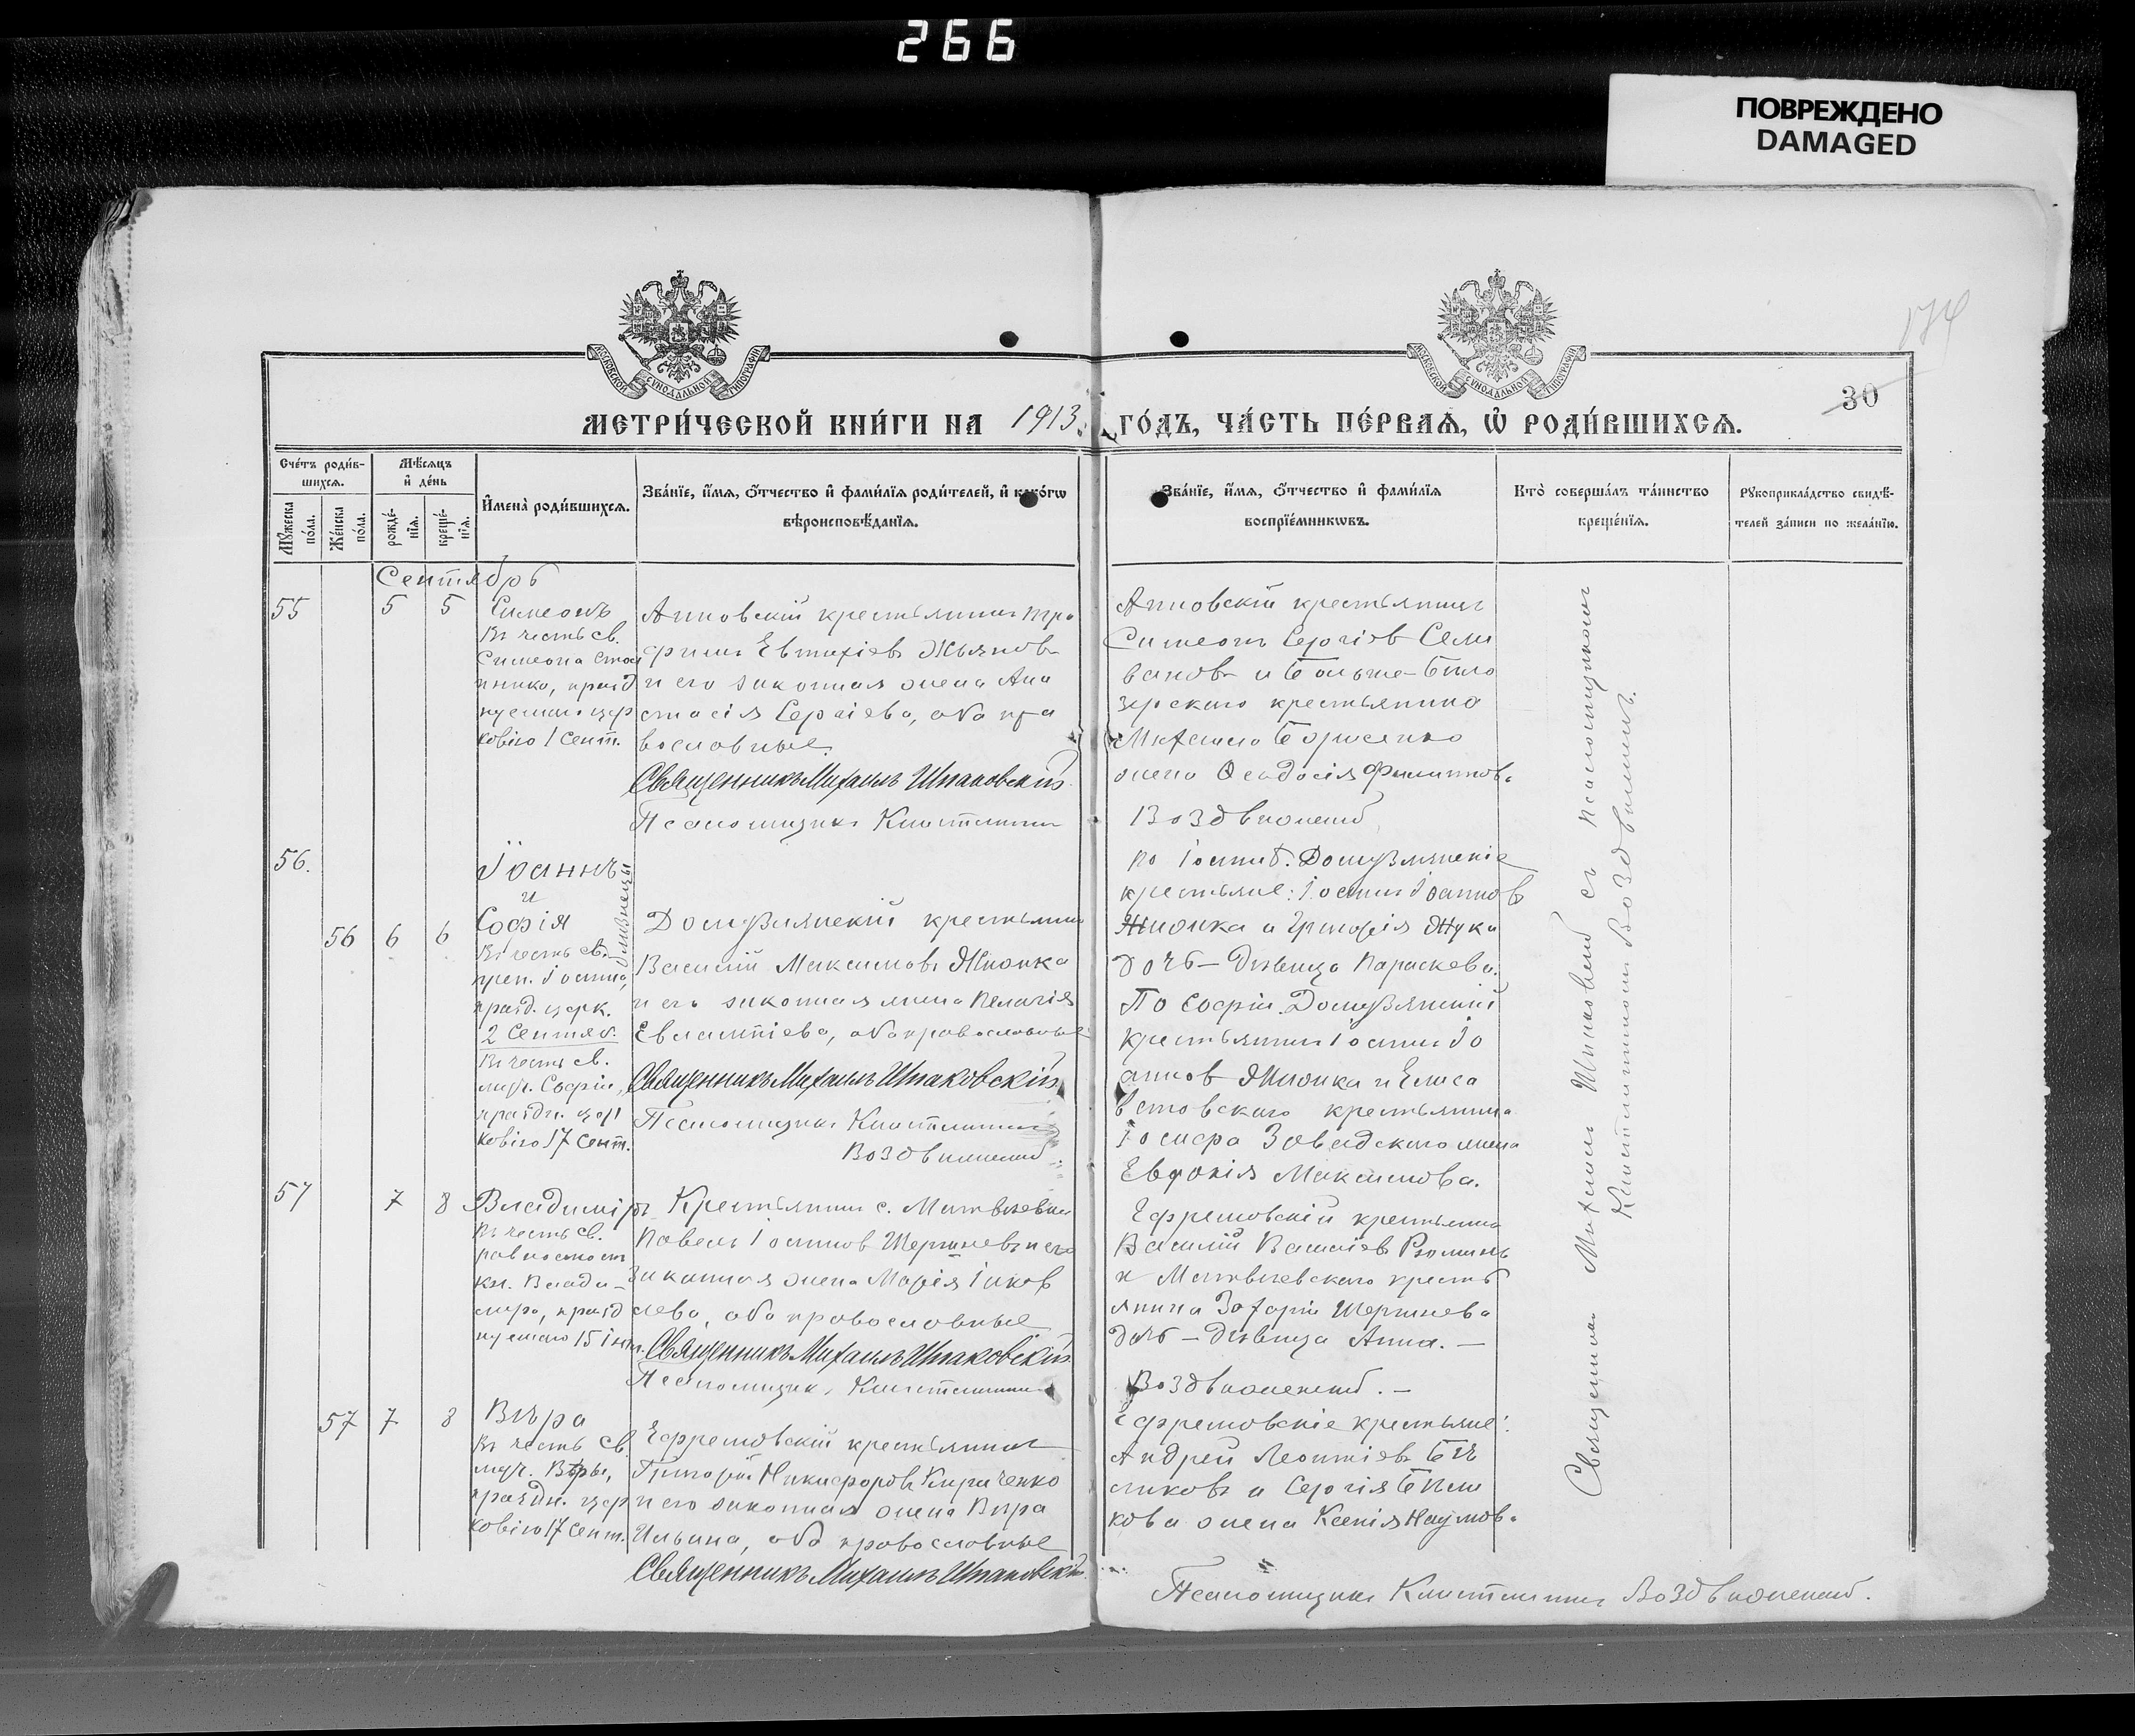 266
ПОВРЕЖДЕНО
DAMAGED
174
30
МОСКОВСКОЙ СѴНОДАЛЬНОЙ ТИПОГРАФІИ
МОСКОВСКОЙ СѴНОДАЛЬНОЙ ТИПОГРАФІИ
МЕТРИ́ЧЕСКОЙ КНИ́ГИ НА 1913 ГО́ДЪ, ЧА́СТЬ ПЕ́РВАѦ, Ѡ҆ РОДИ́ВШИХСѦ.
Сче́тъ роди́в-
шихсѧ.
Мꙋ́жеска
по́ла.
Же́нска
по́ла.
Мѣ́сѧцъ
и҆ де́нь
рожде́-
нїѧ.
креще́-
нїѧ.
И҆мена̀ роди́вшихсѧ.
Зва́нїе, и҆́мѧ, ѻ҆́тчество и҆ фами́лїѧ роди́телей, и҆ како́гѡ
вѣроисповѣ́данїѧ.
Зва́нїе, и҆́мѧ, ѻ҆́тчество и҆ фами́лїѧ
воспрїе́мникѡвъ.
Кто̀ соверша́лъ та́инство
креще́нїѧ.
Рꙋкоприкла́дство свидѣ́-
телей за́писи по жела́нїю.
Сентябрь
55
5 5
Симеонъ
Въ честь св.
Симеона Стол
пника, празд
нуемаго цер
ковію 1 Сент.
Анновскій крестьянинъ Тро
фимъ Евтихіевъ Жьяновъ
и его законная жена Ана
стасія Сергіева, оба пра
вославные.
Священникъ Михаилъ Шпаковскій
Псаломщикъ Константинъ
Анновскій крестьянинъ
Симеонъ Сергіевъ Сели
вановъ и Больше-Бѣло
зерскаго крестьянина
Михаила Борисенко
жена Ѳеодосія Филиппова
Воздвиженскій
56.
56 6 6
Іоаннъ
и
Софія
близнецы
Въ честь св.
преп. Іоанна,
празд. церк.
2 Сентяб.
Въ честь св.
муч. Софіи,
праздн. цер
ковію 17 Сент.
Домузлянскій крестьянинъ
Василій Максимовъ Жионка
и его законная жена Пелагія
Евлампіева, оба православные
Священникъ Михаилъ Шпаковскій
Псаломщикъ Константинъ
Воздвиженскій.
По Іоаннѣ. Домузлянскіе
крестьяне: Іоаннъ Іоанновъ
Жионка и Григорія Жука
дочь - девица Параскева.
По Софіи. Домузлянскій
крестьянинъ Іоаннъ Іо
анновъ Жионка и Елиса
ветовскаго крестьянина
Іосифа Завадскаго жена
Евдокія Максимова.
57
7 8
Владиміръ
Въ честь св.
равноапост
кн. Влади-
мира, празд
нуемаго 15 Іюл.
Крестьянинъ с. Матвѣевки
Павелъ Іоанновъ Шершневъ и его
законная жена Марія Іаков
лева, оба православные
Священникъ Михаилъ Шпаковскій
Псаломщикъ Константинъ
Ефремовскій крестьянинъ
Василій Василіевъ Рюминъ
и Матвѣевскаго кресть
янина Захаріи Шершнева
дочь - дѣвица Анна. -
Воздвиженскій. -
57 7 8
Вѣра
Въ честь св.
муч. Вѣры,
праздн. цер
ковію 17 Сент.
Ефремовскій крестьянинъ
Григорій Никифоровъ Кириченко
и его законная жена Вѣра
Ильина, оба православные
Священникъ Михаилъ Шпаковскій
Ефремовскіе крестьяне:
Андрей Леонтіевъ Бѣ
ликовъ и Сергія Бѣли
кова жена Ксенія Наумова
Псаломщикъ Константинъ Воздвиженскій.
Священникъ Михаилъ Шпаковскій съ псаломщикомъ
Константиномъ Воздвиженскимъ.